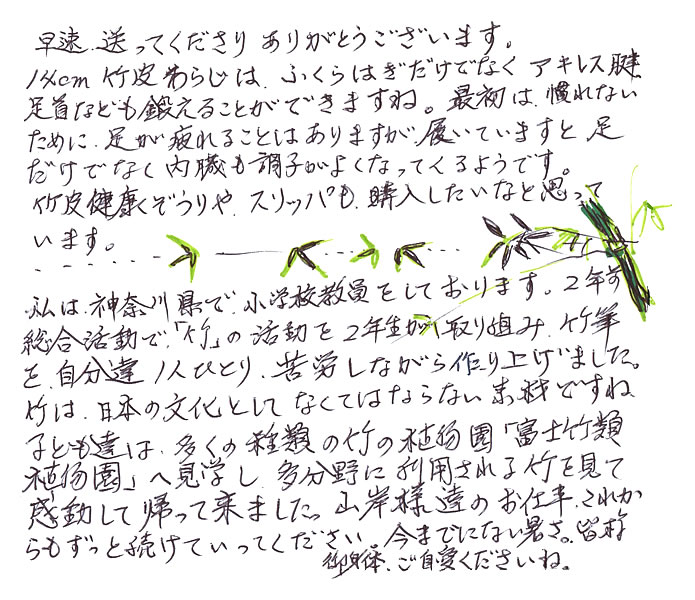 早速、送ってくださり ありがとうございます。
14cm 竹皮わらじは、ふくらはぎだけでなく アキレス腱、
足首なども鍛えることができますね。最初は、慣れない
ために、足が疲れることはありますが、履いていますと 足
だけでなく内臓も調子がよくなってくるようです。
竹皮健康ぞうりや、スリッパも、購入したいなと思って
います。
私は、神奈川県で、小学校教員をしております。2年前
総合活動で、「竹」の活動を2年生が取り組み、竹筆
を、自分達1人ひとり、苦労しながら作り上げました。
竹は、日本の文化としてなくてはならない素材ですね
子ども達は、多くの種類の竹の植物園「富士竹類
植物園」へ見学し、多分野に利用される竹を見て
感動して帰って来ました。山岸様達のお仕事、これか
らもずっと続けていってください。今までにない暑さ。皆様
御身体、ご自愛くださいね。